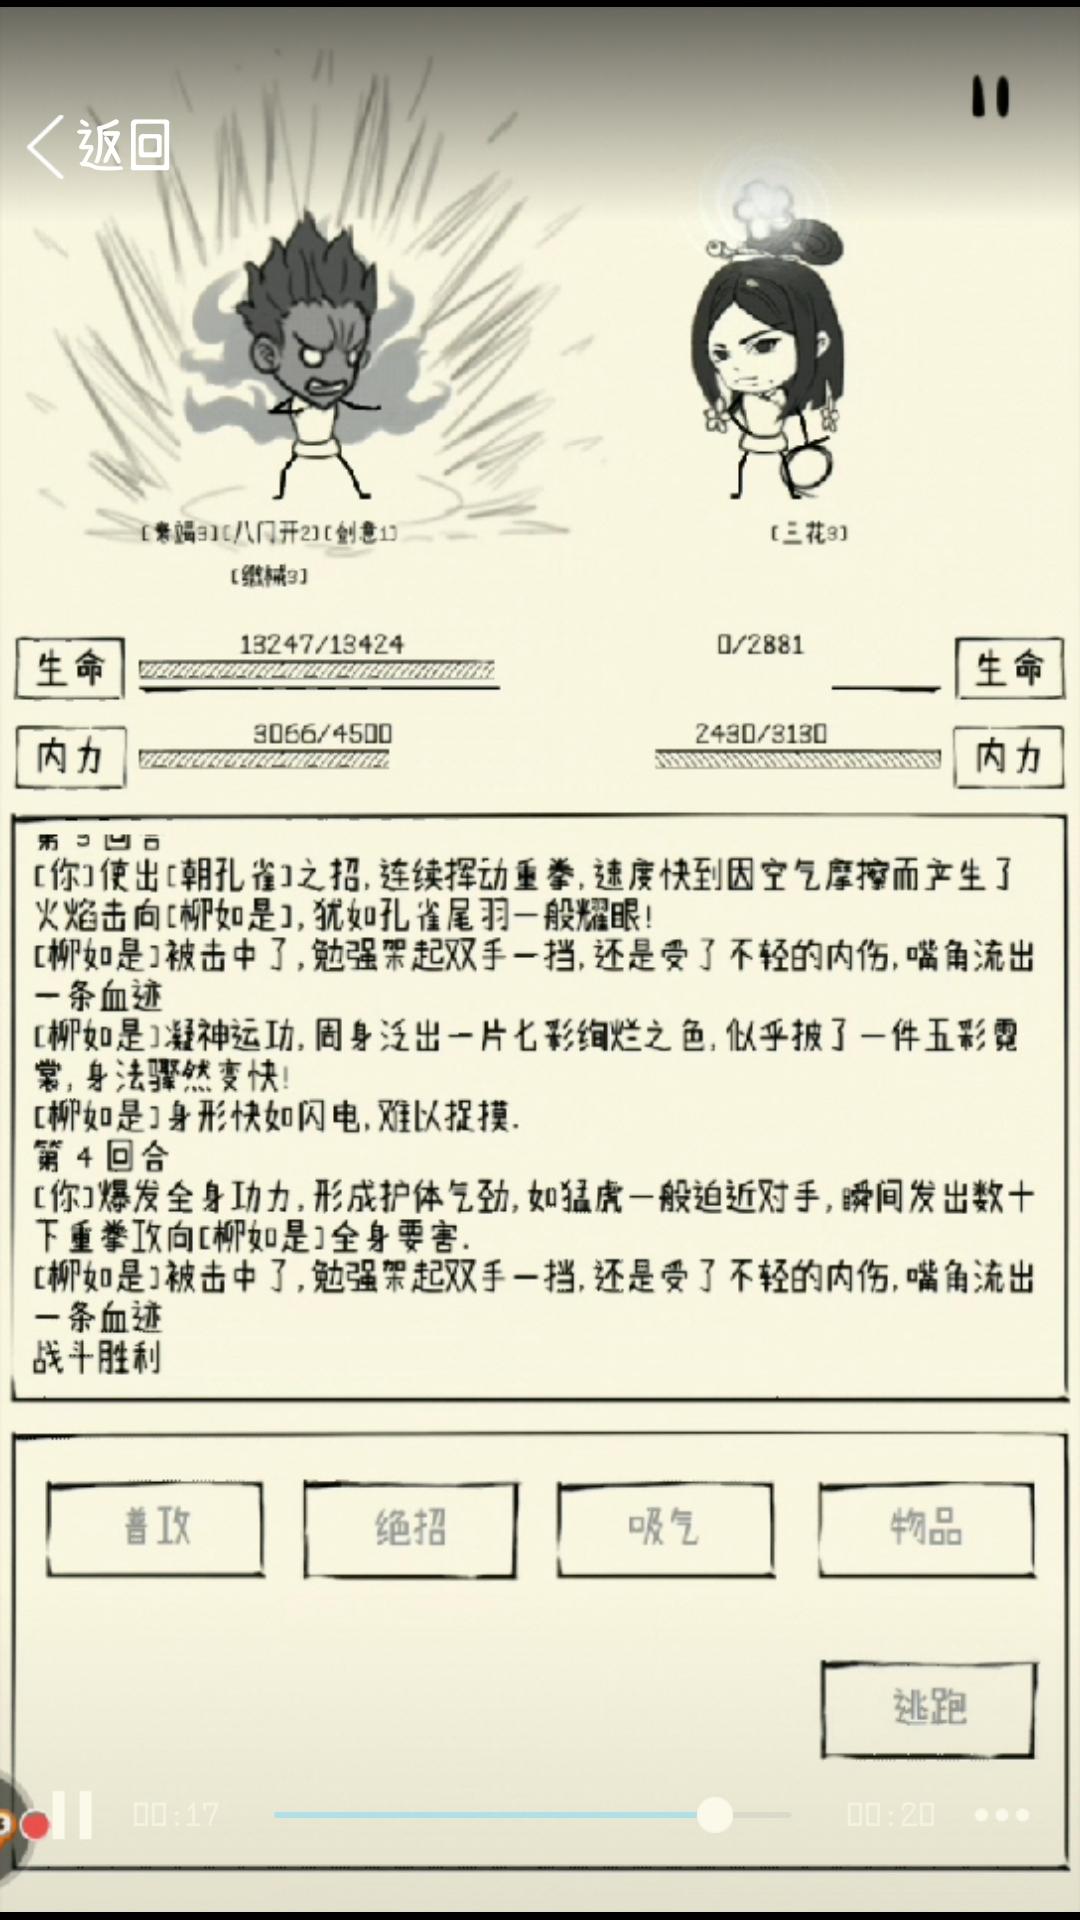 返回
[八门开2][剑意1]
[三花3]
[缴械3]
13247/13424
0/2881
生命
生命
3066/4500
2430/3130
内力
内力
第 3 回合
[你]使出[朝孔雀]之招,连续挥动重拳,速度快到因空气摩擦而产生了
火焰击向[柳如是],犹如孔雀尾羽一般耀眼!
[柳如是]被击中了,勉强架起双手一挡,还是受了不轻的内伤,嘴角流出
一条血迹
[柳如是]凝神运功,周身泛出一片七彩绚烂之色,似乎披了一件五彩霓
裳,身法骤然变快!
[柳如是]身形快如闪电,难以捉摸.
第 4 回合
[你]爆发全身功力,形成护体气劲,如猛虎一般迫近对手,瞬间发出数十
下重拳攻向[柳如是]全身要害.
[柳如是]被击中了,勉强架起双手一挡,还是受了不轻的内伤,嘴角流出
一条血迹
战斗胜利
普攻
绝招
吸气
物品
逃跑
00:17
00:20